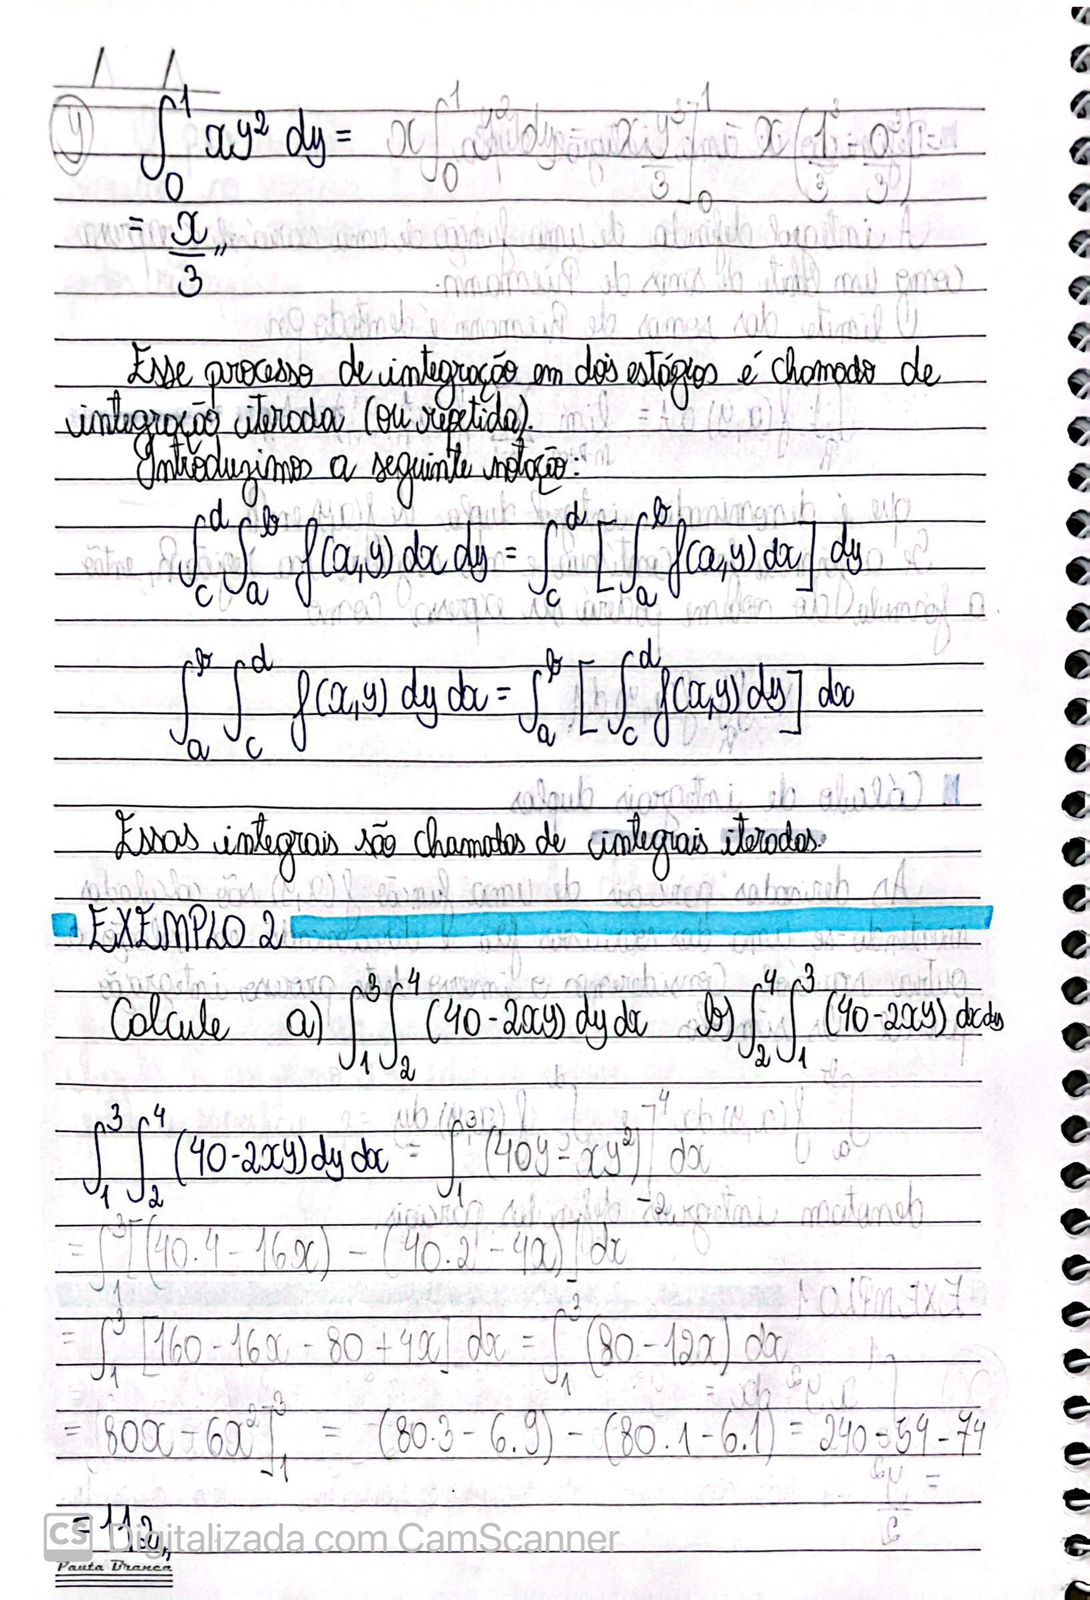 y) ∫₀¹ xy² dy = x ∫₀¹ y² dy = x y³/3 ]₀¹ = x (1³/3 - 0³/3)
= x/3 ,,
Esse processo de integração em dois estágios é chamado de
integração iterada (ou repetida).
Introduzimos a seguinte notação:
∫_c^d ∫_a^b f(x,y) dx dy = ∫_c^d [∫_a^b f(x,y) dx] dy
∫_a^b ∫_c^d f(x,y) dy dx = ∫_a^b [∫_c^d f(x,y) dy] dx
Essas integrais são chamadas de integrais iteradas.
EXEMPLO 2
Calcule a) ∫₁³ ∫₂⁴ (40 - 2xy) dy dx b) ∫₂⁴ ∫₁³ (40 - 2xy) dx dy
∫₁³ ∫₂⁴ (40 - 2xy) dy dx = ∫₁³ (40y - xy²) ]₂⁴ dx
= ∫₁³ [(40.4 - 16x) - (40.2 - 4x)] dx
= ∫₁³ [160 - 16x - 80 + 4x] dx = ∫₁³ (80 - 12x) dx
= 80x - 6x² ]₁³ = (80.3 - 6.9) - (80.1 - 6.1) = 240 - 54 - 74
= 112,,
CS Digitalizada com CamScanner
Pauta Branca